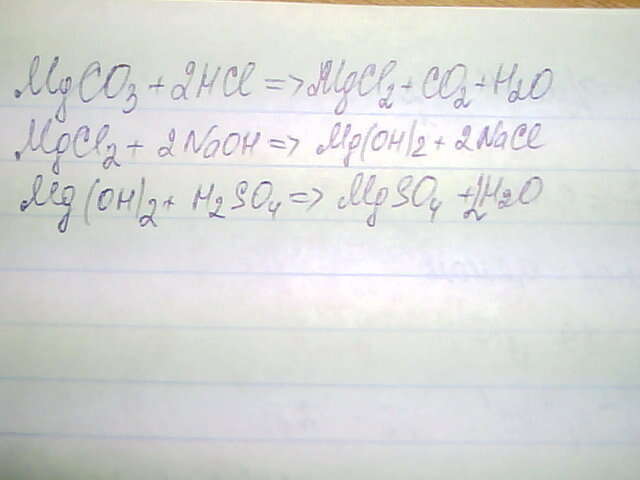 MgCO3 + 2HCl => MgCl2 + CO2 + H2O
MgCl2 + 2NaOH => Mg(OH)2 + 2NaCl
Mg(OH)2 + H2SO4 => MgSO4 + 2H2O